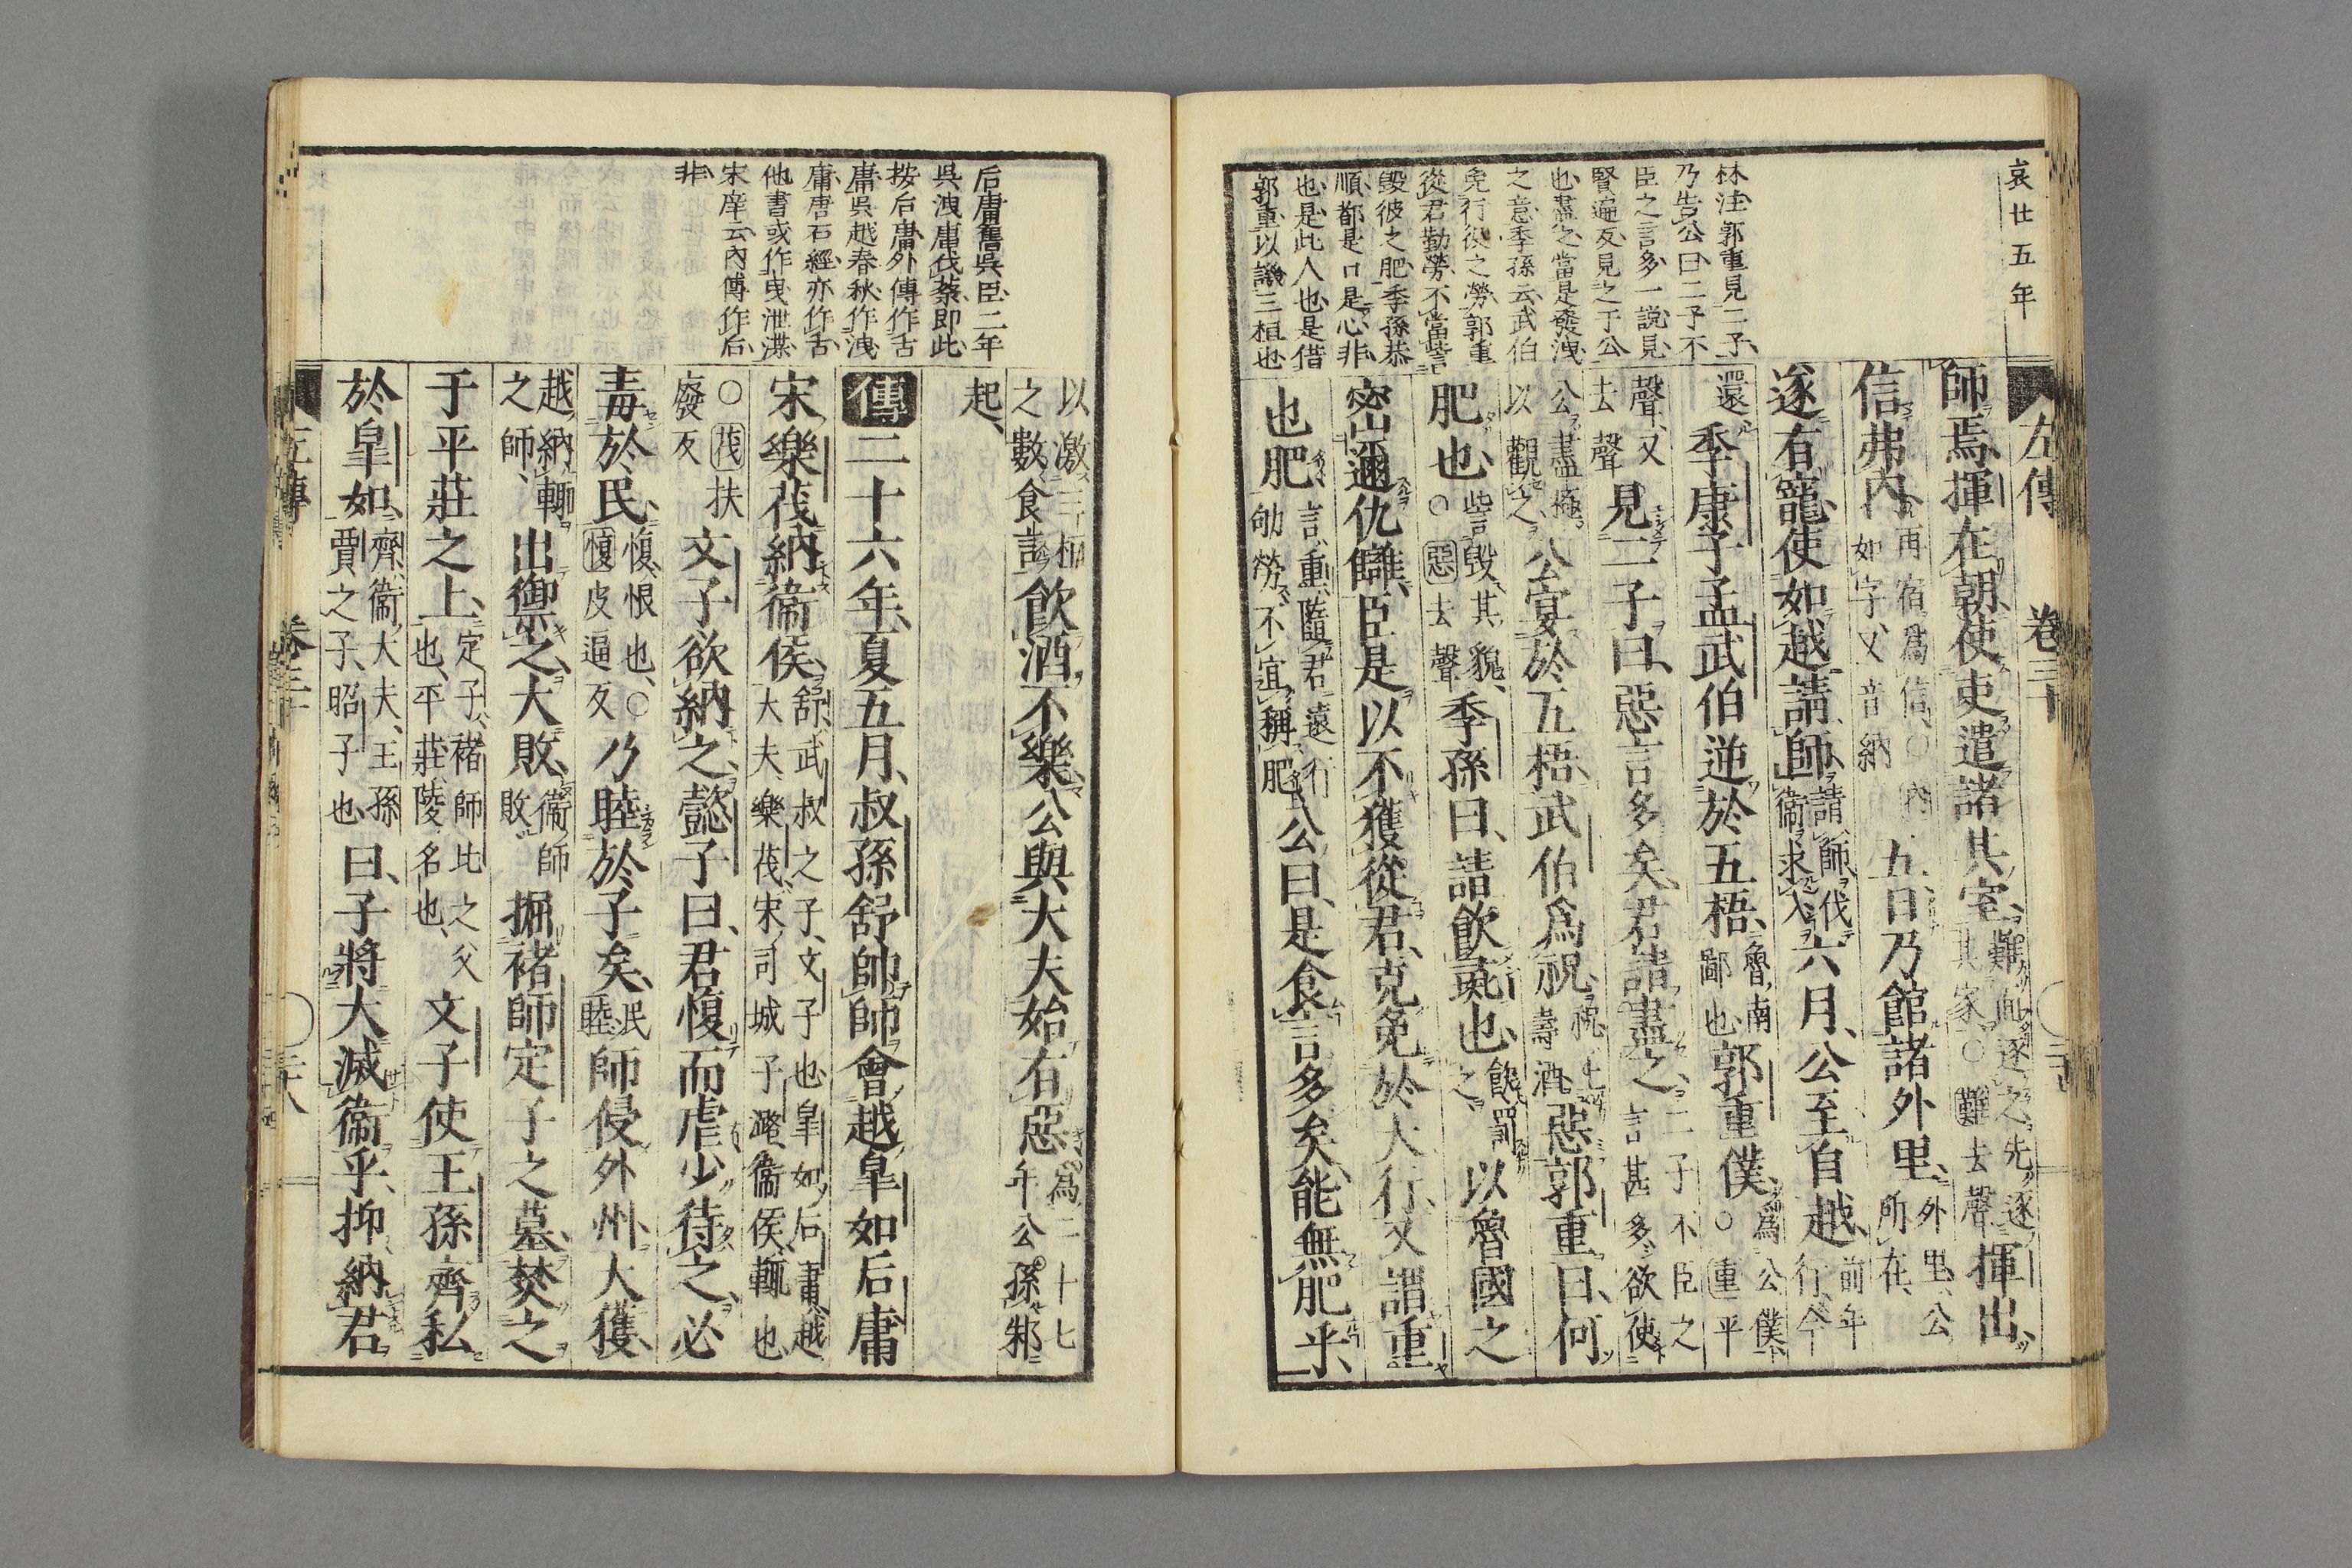 哀廿五年
林注郭重見二子
乃告公曰二子不
臣之言多一說見
賢遍反見之于公
也盡之當是發洩
之意季孫云武伯
免行役之勞郭重
從君勤勞不當訾
毀彼之肥季孫恭
順都是口是心非
也是此人也是借
郭重以譏三桓也
左傳 卷三十
師焉揮在朝使吏遣諸其室難面逐之先逐其家○難去聲揮出
信弗內再宿爲信○內如字又音納五日乃館諸外里外里公所在
遂有寵使如越請師請師伐衞求入六月公至自越前年行今
還季康子孟武伯逆於五梧魯南鄙也郭重僕爲公僕○重平
聲又去聲見二子曰惡言多矣君請盡之二子不臣之言甚多欲使
公盡極以觀之公宴於五梧武伯爲祝祝上壽酒惡郭重曰何
肥也訾毀其貌○惡去聲季孫曰請飲彘也飲罰之以魯國之
密邇仇讎臣是以不獲從君克免於大行又謂重
也肥言重隨君遠行劬勞不宜稱肥公曰是食言多矣能無肥乎
后庸舊吳臣二年
吳洩庸伐蔡即此
按后庸外傳作舌
庸吳越春秋作洩
庸唐石經亦作舌
他書或作曳泄渫
宋庠云內傳作后
非
以激三桓之數食言飲酒不樂公與大夫始有惡爲二十七年公孫邾
起
傳二十六年夏五月叔孫舒帥師會越皐如后庸
宋樂茷納衞侯舒武叔之子文子也皐如后庸越大夫樂茷宋司城子潞衞侯輒也
○茷扶廢反文子欲納之懿子曰君愎而虐少待之必
毒於民愎恨也○愎皮逼反乃睦於子矣民睦師侵外州大獲
越納輒之師出禦之大敗衞師敗掘褚師定子之墓焚之
于平莊之上定子褚師比之父也平莊陵名也文子使王孫齊私
於皐如齊衞大夫王孫賈之子昭子也曰子將大滅衞乎抑納君
左傳 卷三十